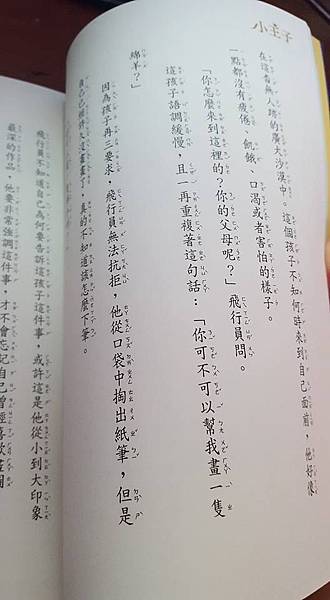 小王子
在渺無人煙的廣大沙漠中。這個孩子不知何時來到自己面前，他好像
一點都沒有疲倦、飢餓、口渴或者害怕的樣子。
「你怎麼來到這裡的？你的父母呢？」飛行員問。
這孩子語調緩慢，且一再重複著這句話：「你可不可以幫我畫一隻
綿羊？」
因為孩子再三要求，飛行員無法抗拒，他從口袋中掏出紙筆，但是
自己已經許久沒畫畫了，真的不知道該怎麼下筆。
飛行員不知道自己為何要告訴這孩子這件事，或許這是他從小到大印象
最深的作品，他要非常強調這件事，才不會忘記自己曾經喜歡畫圖